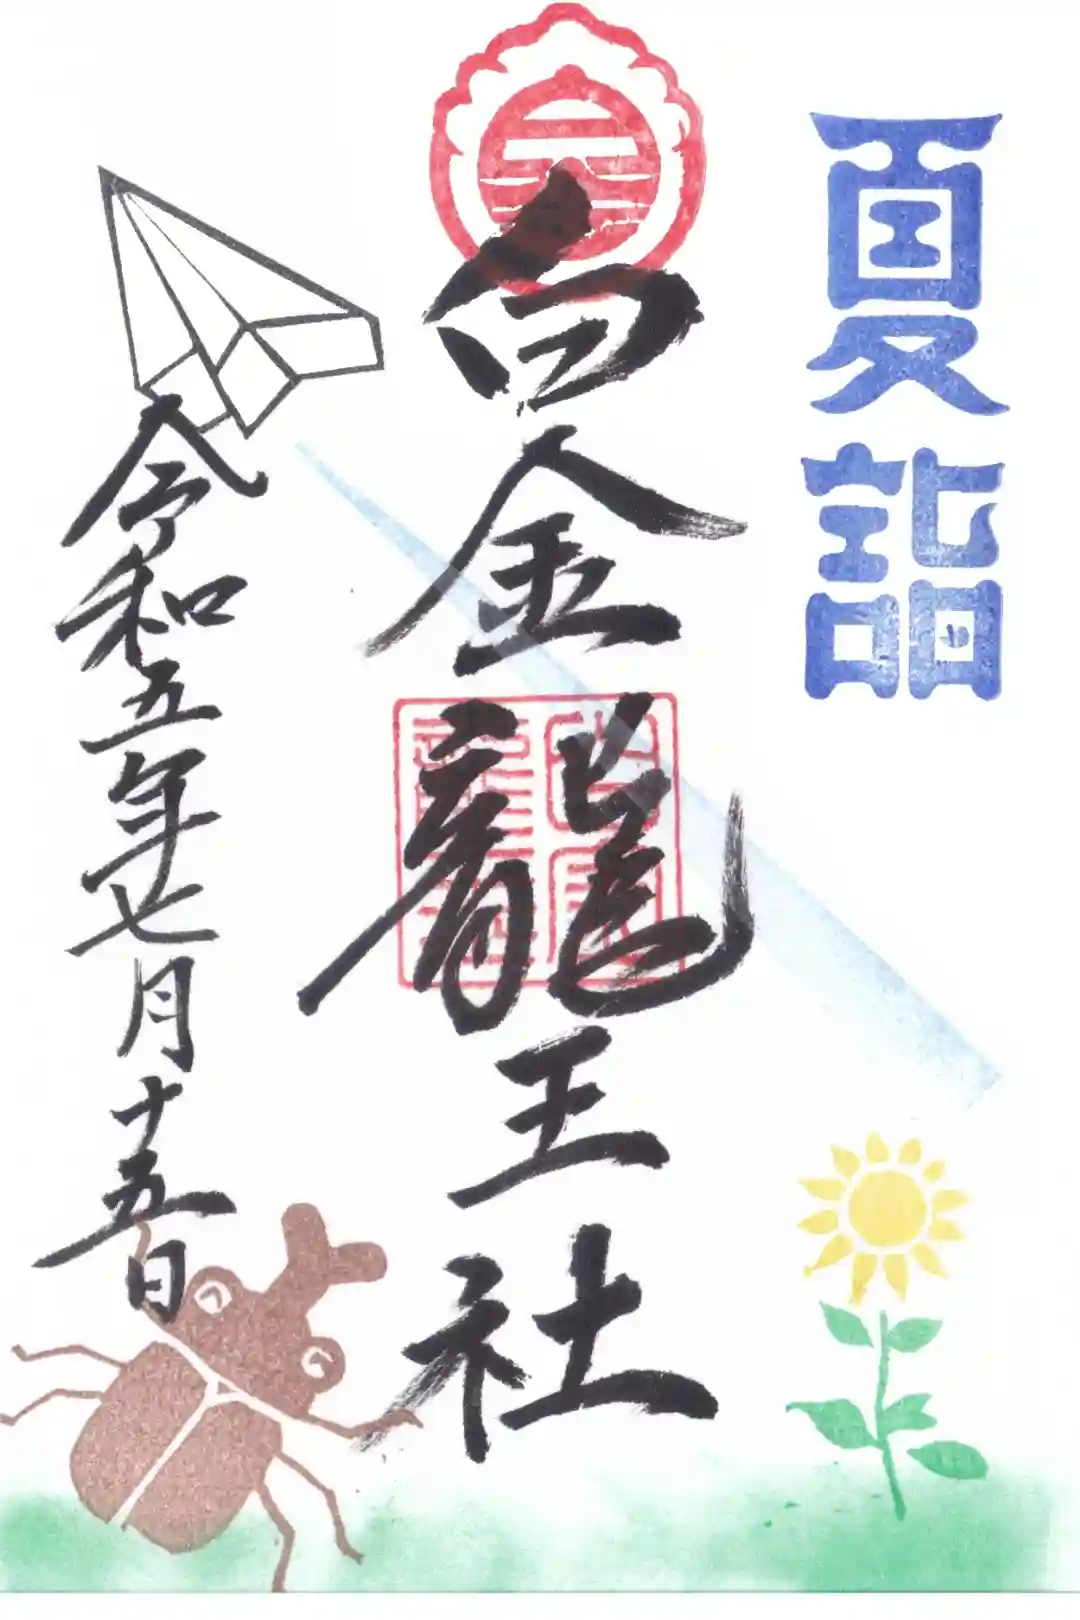 夏詣
白金龍王社
令和五年七月十五日